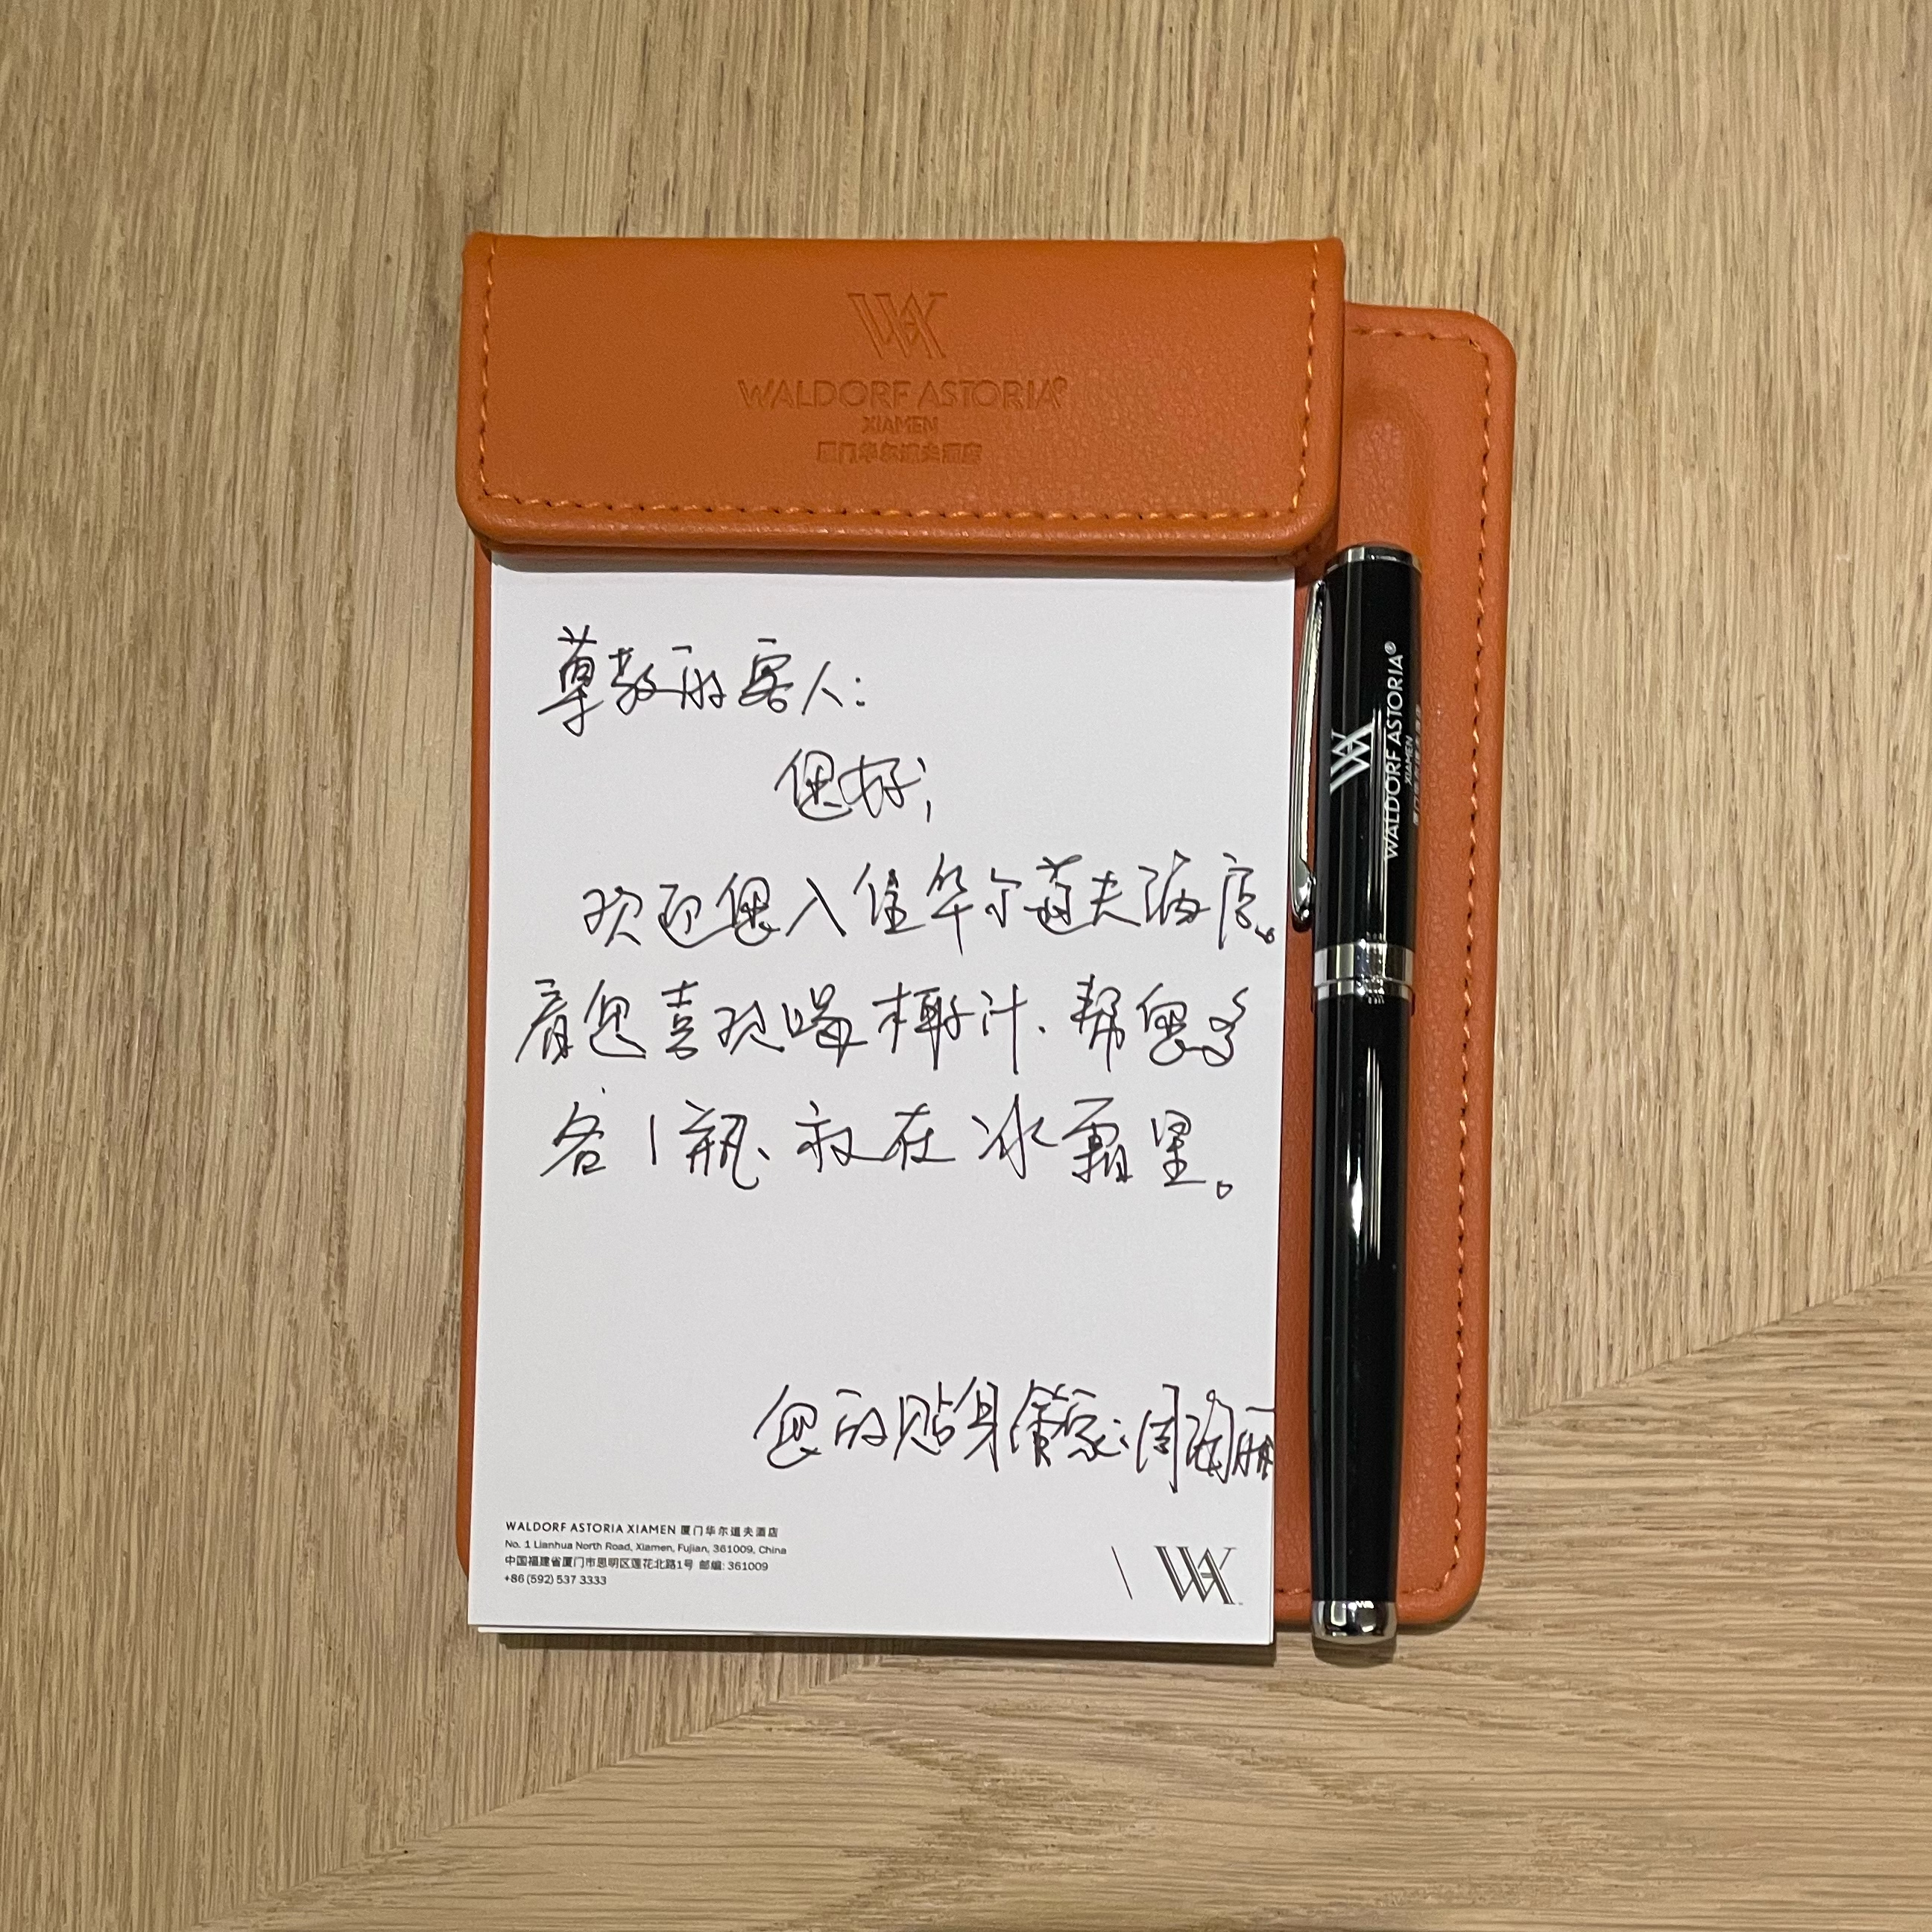 WALDORF ASTORIA®
XIAMEN
厦门华尔道夫酒店
尊敬的客人:
您好;
欢迎您入住华尔道夫酒店。
看您喜欢喝椰汁、帮您多
备1瓶、放在冰霜里。
您的贴身管家:周海丽
WALDORF ASTORIA®
XIAMEN
WALDORF ASTORIA XIAMEN 厦门华尔道夫酒店
No. 1 Lianhua North Road, Xiamen, Fujian, 361009, China
中国福建省厦门市思明区莲花北路1号 邮编: 361009
+86 (592) 537 3333